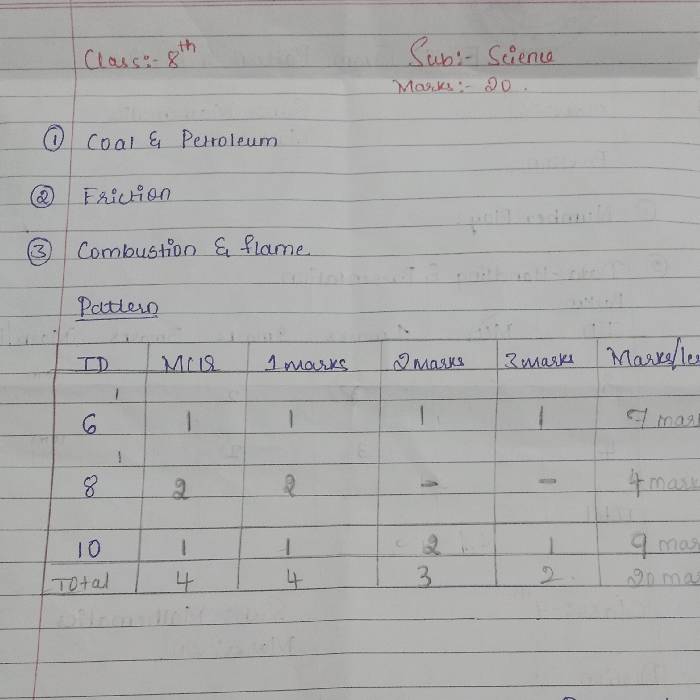 Class:- 8th Sub:- Science
Marks:- 20.
① Coal & Petroleum
② Friction
③ Combustion & flame.
Pattern
ID MCQ 1marks 2marks 3marks Marks/les
1
6 1 1 1 1 7 mar
1
8 2 2 - - 4 mark
10 1 1 2 1 9 mar
Total 4 4 3 2 20 ma